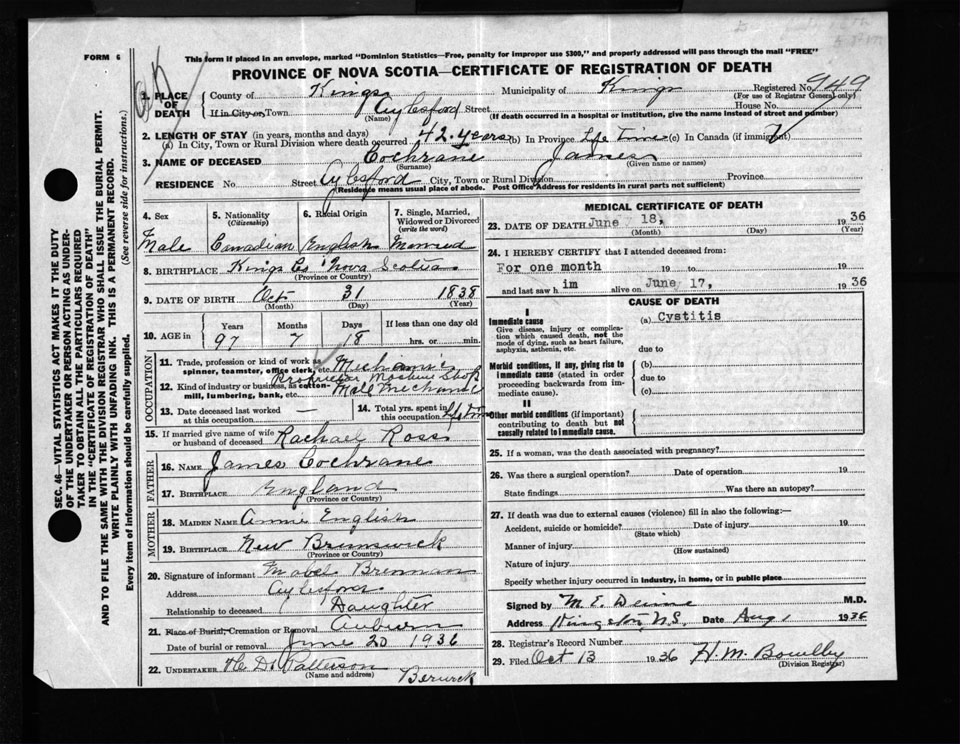 FORM 6
This form if placed in an envelope, marked "Dominion Statistics—Free, penalty for improper use $300," and properly addressed will pass through the mail "FREE"
PROVINCE OF NOVA SCOTIA—CERTIFICATE OF REGISTRATION OF DEATH
1. PLACE OF DEATH
County of Kings Municipality of Kings Registered No. 949
(For use of Registrar General only)
If in City or Town Aylesford Street House No.
(Name) (If death occurred in a hospital or institution, give the name instead of street and number)
2. LENGTH OF STAY (in years, months and days)
(a) In City, Town or Rural Division where death occurred 42 years (b) In Province Life Time (c) In Canada (if immigrant)
3. NAME OF DECEASED Cochrane James
(Surname) (Given name or names)
RESIDENCE No. Street Aylesford City, Town or Rural Division Province
(Residence means usual place of abode. Post Office Address for residents in rural parts not sufficient)
4. Sex 5. Nationality (Citizenship) 6. Racial Origin 7. Single, Married, Widowed or Divorced (write the word)
Male Canadian English Married
8. BIRTHPLACE Kings Co Nova Scotia
(Province or Country)
9. DATE OF BIRTH Oct 31 1838
(Month) (Day) (Year)
10. AGE in Years Months Days If less than one day old
97 7 18 hrs. or min.
OCCUPATION
11. Trade, profession or kind of work as spinner, teamster, office clerk, etc. Mechanic
12. Kind of industry or business, as cotton-mill, lumbering, bank, etc. Proprietor Machine Shop
Male Mechanic
13. Date deceased last worked at this occupation — 14. Total yrs. spent in this occupation life time
15. If married give name of wife or husband of deceased Rachael Ross
FATHER
16. NAME James Cochrane
17. BIRTHPLACE England
(Province or Country)
MOTHER
18. MAIDEN NAME Annie English
19. BIRTHPLACE New Brunswick
(Province or Country)
20. Signature of informant Mabel Brennan
Address Aylesford
Relationship to deceased Daughter
21. Place of Burial, Cremation or Removal Auburn
Date of burial or removal June 20 1936
22. UNDERTAKER Patterson
(Name and address) Berwick
MEDICAL CERTIFICATE OF DEATH
23. DATE OF DEATH June 18, 1936
(Month) (Day) (Year)
24. I HEREBY CERTIFY that I attended deceased from:
For one month 19 to 19
and last saw h im alive on June 17, 1936
CAUSE OF DEATH
I
Immediate cause (a) Cystitis
Give disease, injury or complication which caused death, not the mode of dying, such as heart failure, asphyxia, asthenia, etc.
due to
Morbid conditions, if any, giving rise to immediate cause (stated in order proceeding backwards from immediate cause).
(b)
due to
(c)
II
Other morbid conditions (if important) contributing to death but not causally related to immediate cause.
25. If a woman, was the death associated with pregnancy?
26. Was there a surgical operation? Date of operation 19
State findings Was there an autopsy?
27. If death was due to external causes (violence) fill in also the following:—
Accident, suicide or homicide? Date of injury 19
(State which)
Manner of injury
(How sustained)
Nature of injury
Specify whether injury occurred in industry, in home, or in public place
Signed by M. E. M.D.
Address Kingston, N.S. Date Aug 1 1936
28. Registrar's Record Number
29. Filed Oct 13 1936 H. M. Bowlby
(Division Registrar)
SEC. 46—VITAL STATISTICS ACT MAKES IT THE DUTY
OF THE UNDERTAKER OR PERSON ACTING AS UNDER-
TAKER TO OBTAIN ALL THE PARTICULARS REQUIRED
IN THE "CERTIFICATE OF REGISTRATION OF DEATH"
AND TO FILE THE SAME WITH THE DIVISION REGISTRAR WHO SHALL ISSUE THE BURIAL PERMIT.
WRITE PLAINLY WITH UNFADING INK. THIS IS A PERMANENT RECORD.
Every item of information should be carefully supplied. (See reverse side for instructions.)